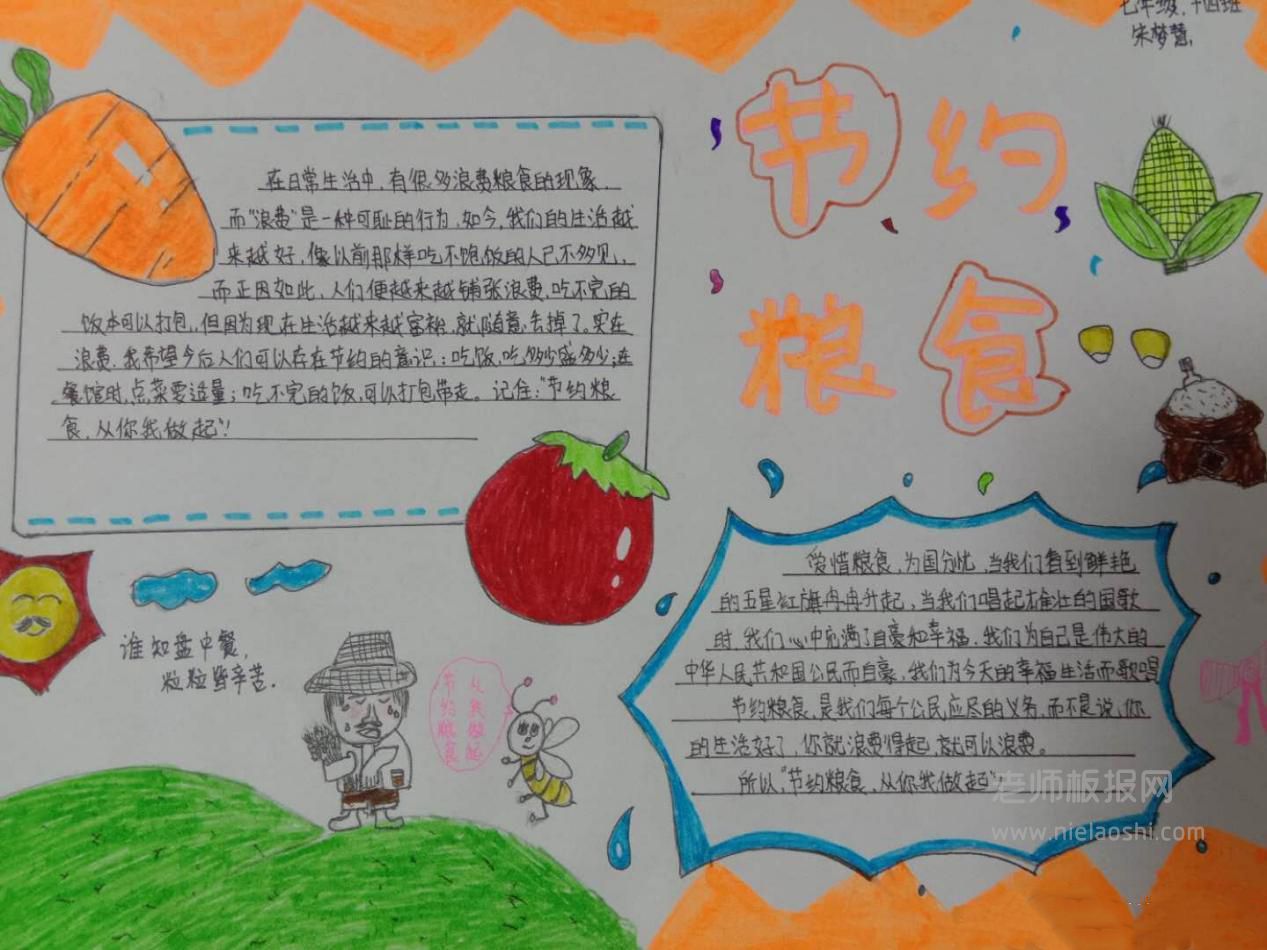 七年级.十四班
宋梦慧.
节约
粮食
在日常生活中,有很多浪费粮食的现象.
而"浪费"是一种可耻的行为.如今,我们的生活越
来越好,像以前那样吃不饱饭的人已不多见,
而正因如此,人们便越来越铺张浪费,吃不完的
饭本可以打包,但因为现在生活越来越富裕,就随意丢掉了。实在
浪费.我希望今后人们可以存在节约的意识:吃饭,吃多少盛多少;进
餐馆时,点菜要适量;吃不完的饭,可以打包带走。记住:"节约粮
食,从你我做起"!
谁知盘中餐,
粒粒皆辛苦.
从我做起
节约粮食
爱惜粮食,为国分忧,当我们看到鲜艳
的五星红旗冉冉升起,当我们唱起雄壮的国歌
时,我们心中充满了自豪和幸福.我们为自己是伟大的
中华人民共和国公民而自豪,我们为今天的幸福生活而歌唱
节约粮食,是我们每个公民应尽的义务,而不是说,你
的生活好了,你就浪费得起,就可以浪费。
所以,"节约粮食,从你我做起"!
老师板报网
www.nielaoshi.com